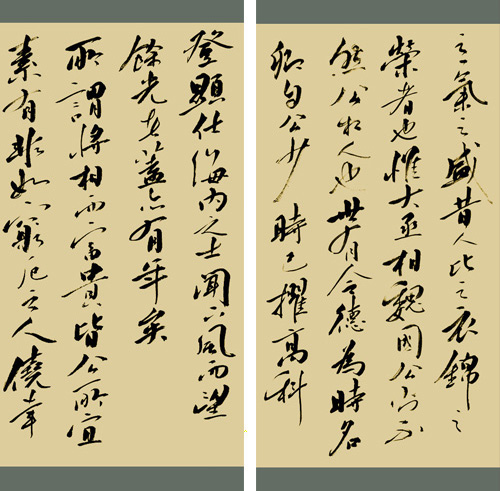 之氣之盛昔人比之衣錦之
榮者也惟大丞相魏國公則不
然公相人也世有令德為時名
卿自公少時已擢高科
登顯仕海內之士聞下風而望
餘光者蓋亦有年矣
所謂將相而富貴皆公所宜
素有非如窮厄之人僥幸